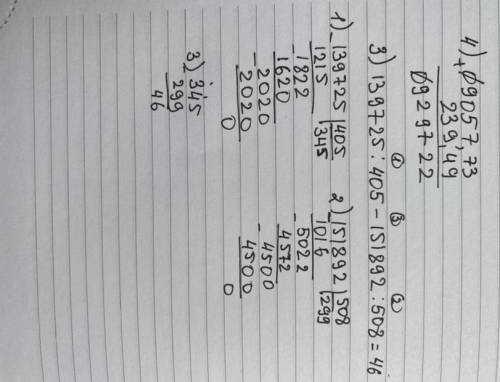 4) + 09057,73
239,49
09297-22
① ③ ②
3) 139725 : 405 - 151892 : 508 = 46
1) - 139725 | 405
1215 | 345
- 1822
1620
- 2020
2020
0
2) - 151892 | 508
1016 | 299
- 5022
4572
- 4500
4500
0
3) - 345
299
46